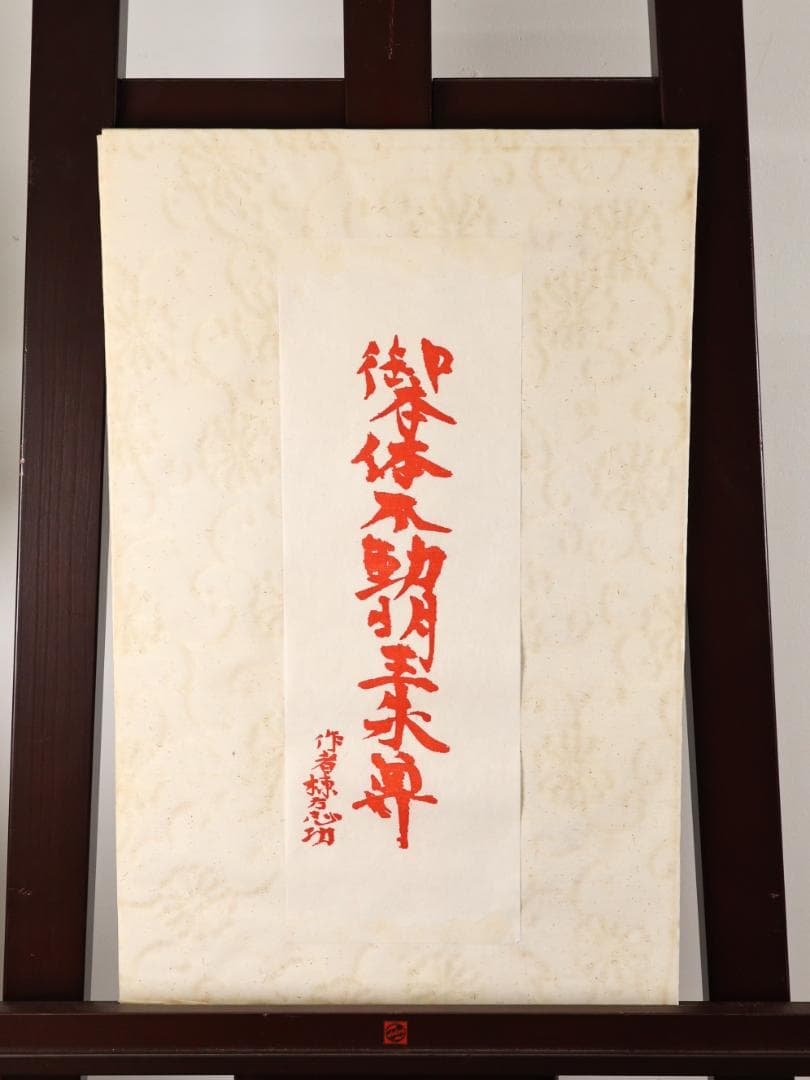 御本体不動明王朱尊
作者棟方志功